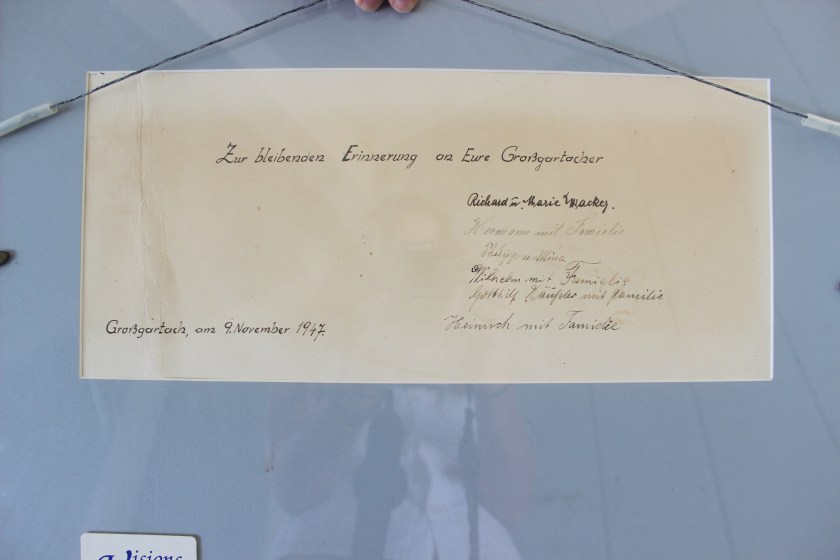 Zur bleibenden Erinnerung an Eure Großgartacher
Richard u. Marie Macker.
Hermann mit Familie
Philipp u.
Wilhelm mit Familie
Gotthilf Häußler mit Familie
Heinrich mit Familie
Großgartach, am 9. November 1947.
Visions